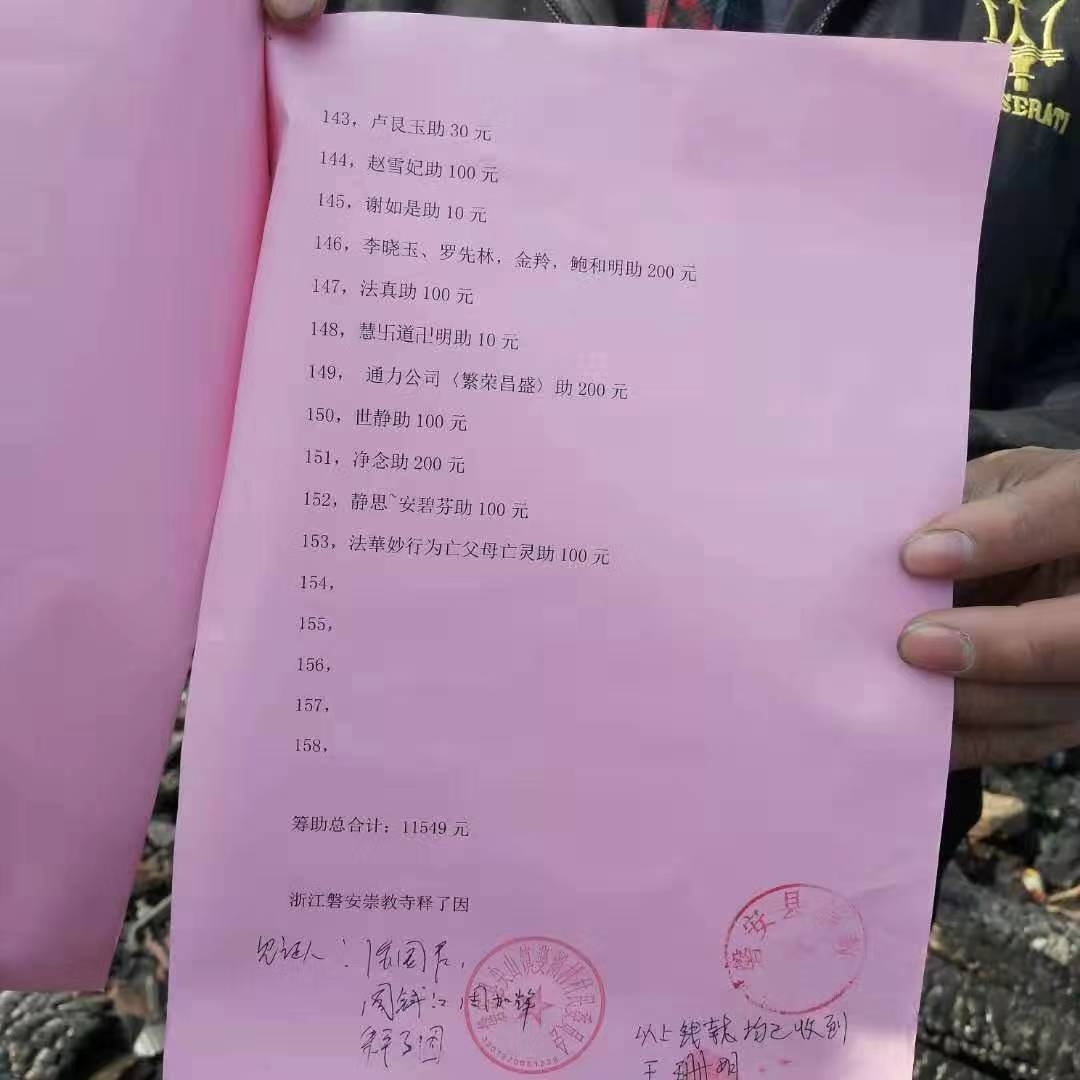 143，卢艮玉助 30 元
144，赵雪妃助 100 元
145，谢如是助 10 元
146，李晓玉、罗先林，金羚，鲍和明助 200 元
147，法真助 100 元
148，慧卐道卍明助 10 元
149， 通力公司（繁荣昌盛）助 200 元
150，世静助 100 元
151，净念助 200 元
152，静思~安碧芬助 100 元
153，法華妙行为亡父母亡灵助 100 元
154，
155，
156，
157，
158，
筹助总合计：11549 元
浙江磐安崇教寺释了因
见证人：
释了因
磐安县
以上钱款均已收到
王
SERATI